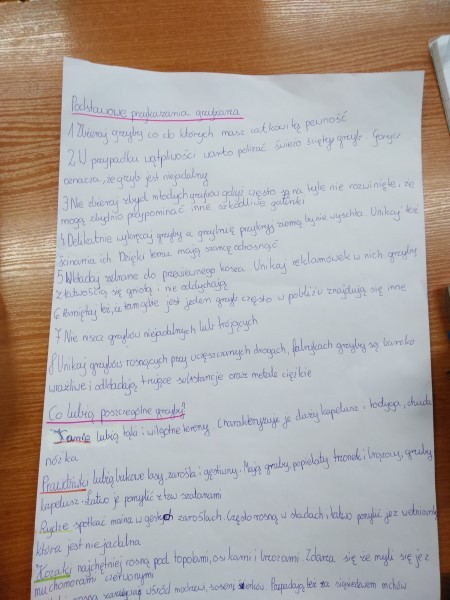 Podstawowe przykazania grzybiarza
1 Zbieraj grzyby co do których masz całkowitą pewność
2 W przypadku wątpliwości warto polizać świeżo ścięty grzyb. Gorycz
oznacza, że grzyb jest niejadalny
3 Nie zbieraj zbyt młodych grzybów gdyż często są na tyle nie rozwinięte, że
mogą złudnie przypominać inne szkodliwe gatunki
4 Delikatnie wykręcaj grzyby a grzybnię przykryj ziemią by nie wyschła. Unikaj też
ścinania ich. Dzięki temu mają szansę odrosnąć
5 Wkładaj zebrane do przewiewnego kosza. Unikaj reklamówek w nich grzyby
z łatwością się gniotą i nie oddychają
6 Pamiętaj też, że tam gdzie jest jeden grzyb często w pobliżu znajdują się inne
7 Nie niszcz grzybów niejadalnych lub trujących
8 Unikaj grzybów rosnących przy uczęszczanych drogach, fabrykach grzyby są bardzo
wrażliwe i odkładają trujące substancje oraz metale ciężkie
Co lubią poszczególne grzyby?
Kanie lubią łąki i wilgotne tereny. Charakteryzuje je duży kapelusz i łodyga, chuda
nóżka
Prawdziwki lubią bukowe lasy, zarośla i gęstwiny. Mają gruby, popielaty trzonek i brązowy, gruby
kapelusz. Łatwo je pomylić z tzw szatanami
Rydze spotkać można w gęstych zaroślach. Często rosną w stadach i łatwo pomylić je z wełnianką
która jest niejadalna
Kozaki najchętniej rosną pod topolami, osikami i brzozami. Zdarza się że myli się je z
muchomorami czerwonymi
rosną zazwyczaj wśród modrzewi, sosen, świerków. Przypadają też za sąsiedztwem mchów